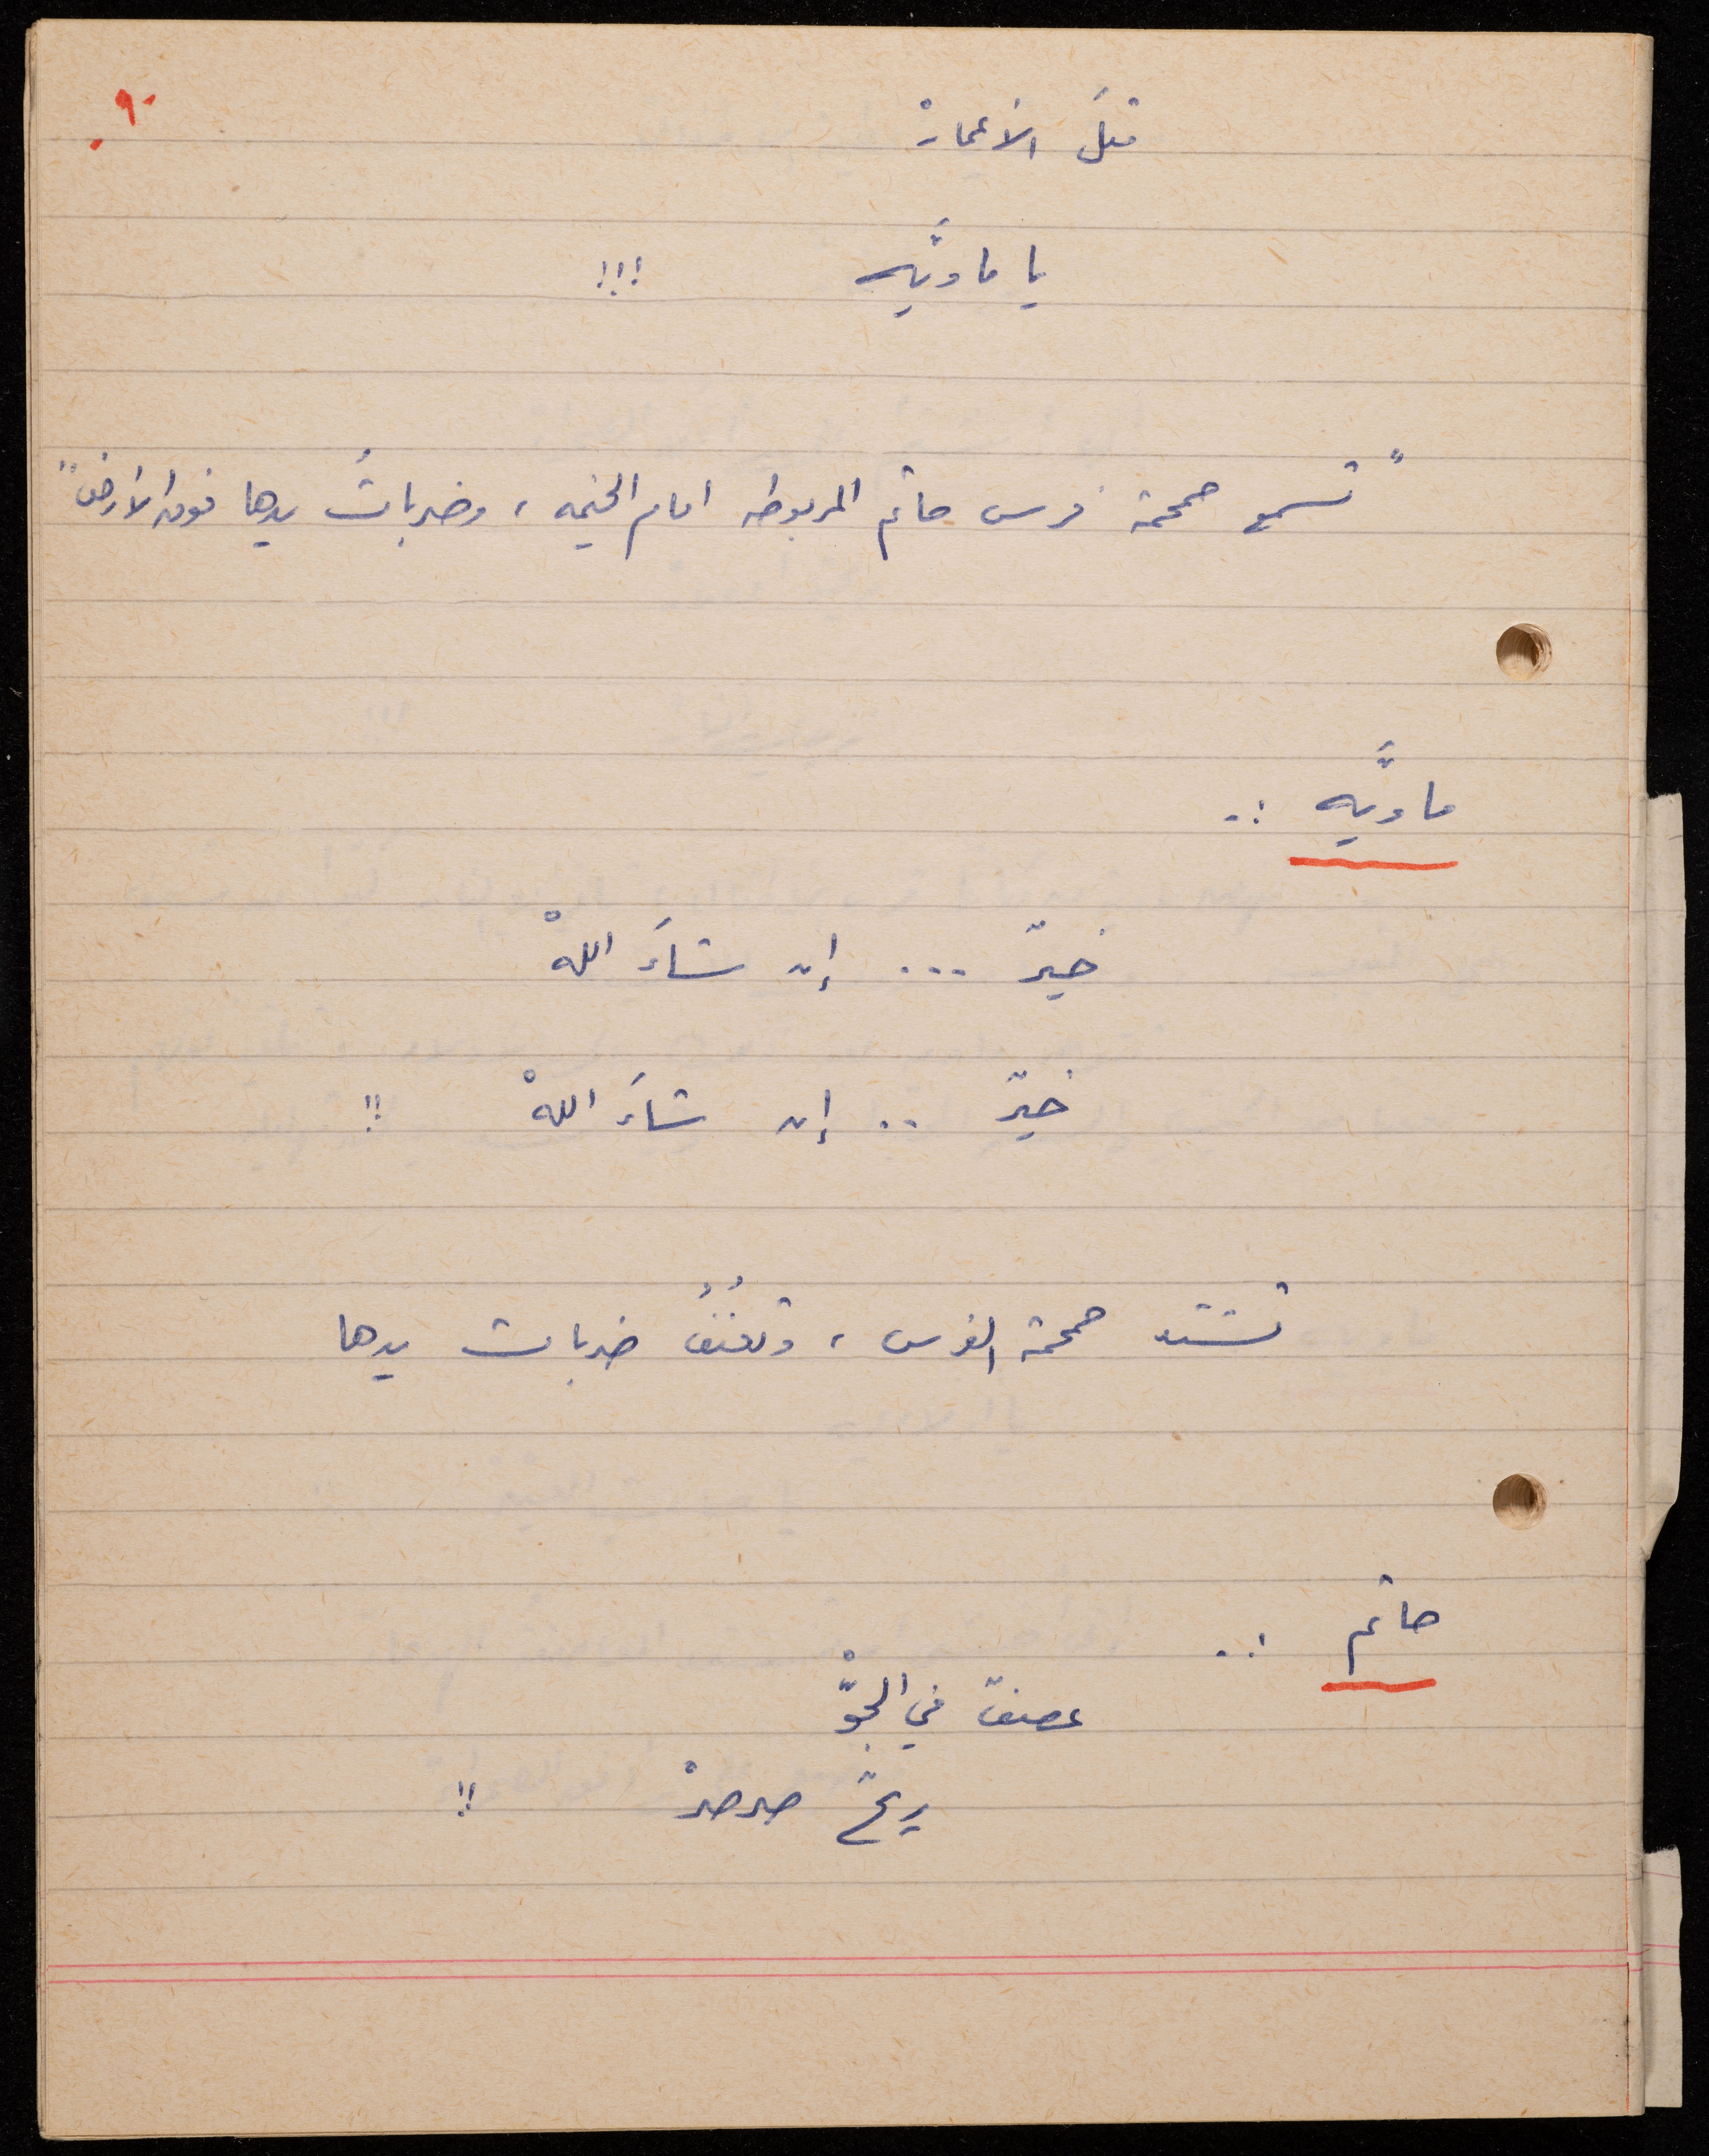 ٩٠
قبلَ الأعمارْ
يا ماويَّه !!!
" تسمع حمحمة فرس حاتم المربوطه امام الخيمه ، وضرباتُ يدها فوق الأرض "
ماويَّه :.
خيرٌ ... إن شاءَ اللهْ
خيرٌ .. إن شاءَ اللهْ !!
تشتد حمحمة الفرس ، وتعنُفُ ضربات يدها
حاتم :.
عصفتْ في الجوّْ
ريحٌ صرصرْ !!